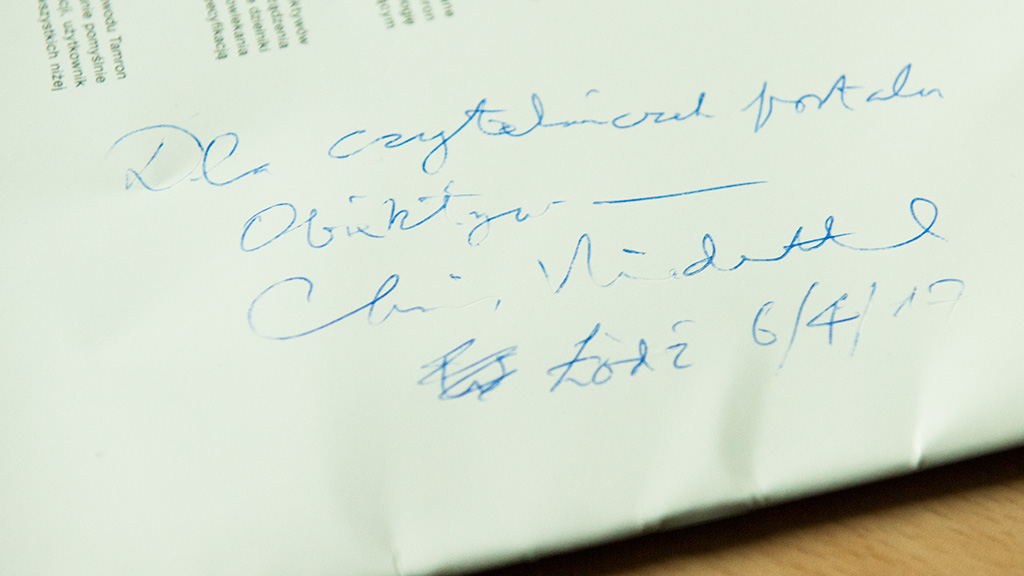 wodu Tamron
nie pomyślnie
użytkownik
szystkich niżej
ktywów
rządzenia
dzielniki
owiekania
pecyfikacją
ane
ron
ogię
ącym
Dla czytelniczek portalu
Obiektyw —
Chris Niedenthal
Łódź 6/4/17